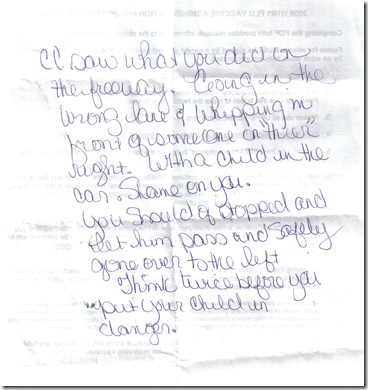 2009 H1N1 FLU VACCINE
I saw what you did on
the freeway. Going in the
wrong lane & whipping in
front of someone in "thier"
right. With a child in the
car. Shame on you.
You should of stopped and
let him pass and safely
gone over to the left
Think twice before you
put your child in
danger.